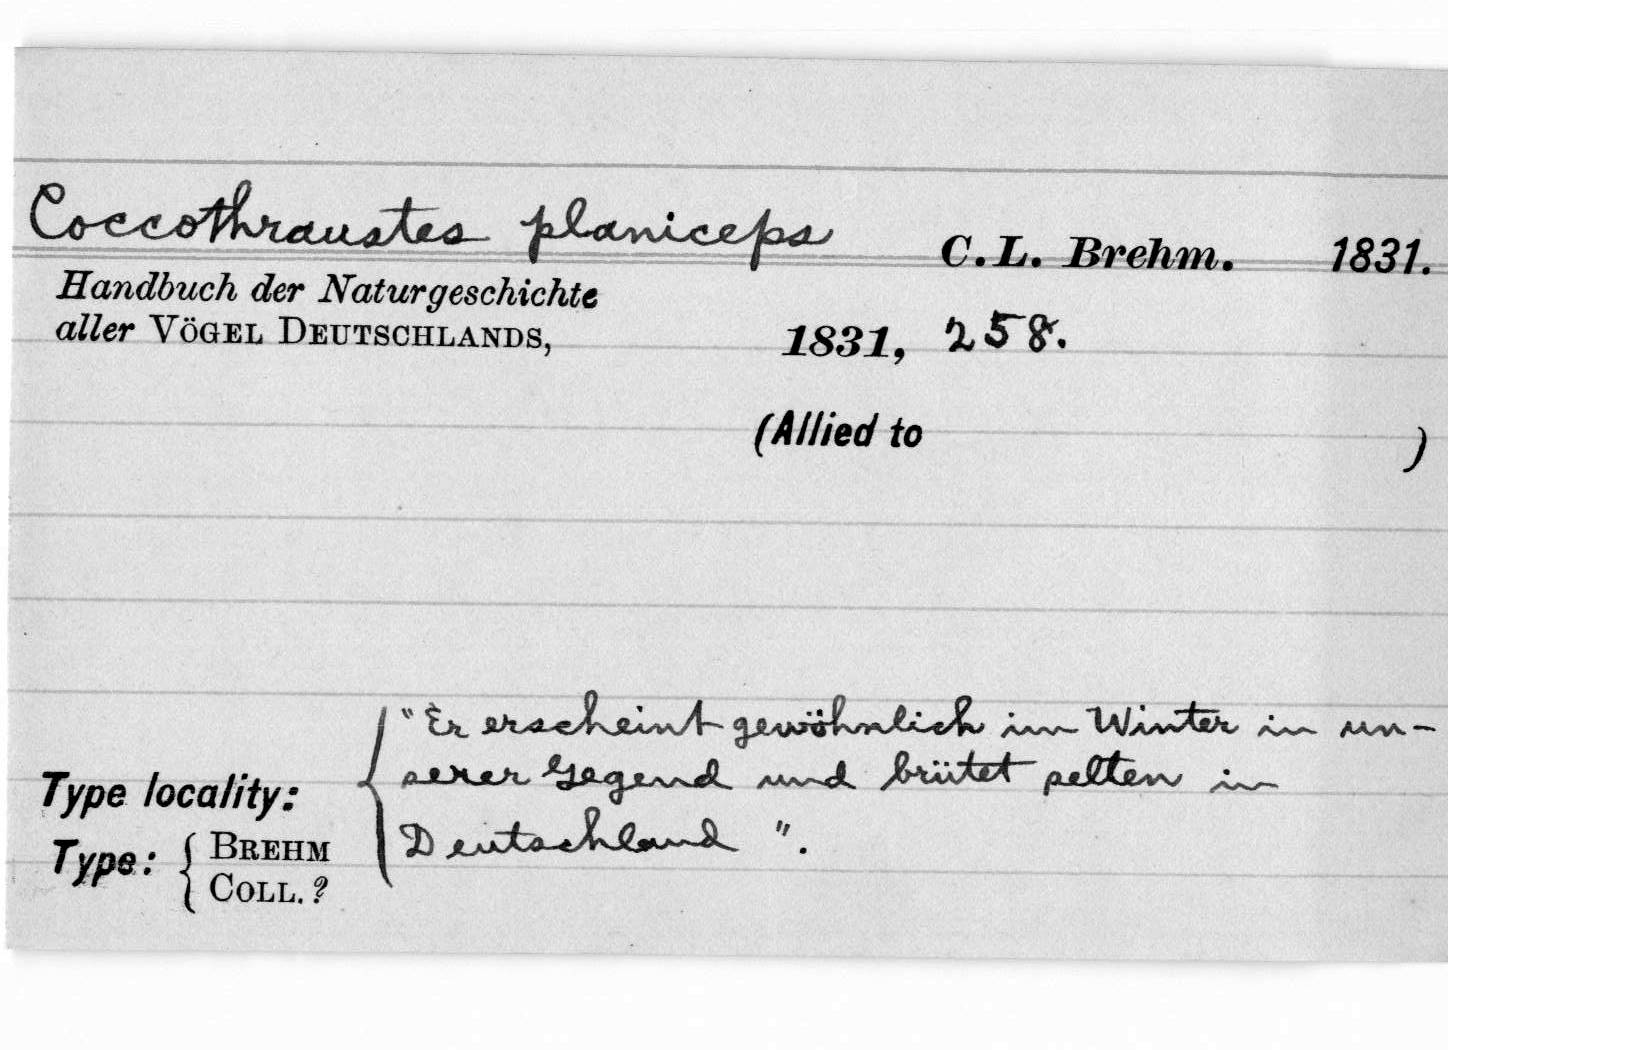 Coccothraustes planiceps C. L. Brehm. 1831.
Handbuch der Naturgeschichte
aller VÖGEL DEUTSCHLANDS, 1831, 258.
(Allied to )
"Er erscheint gewöhnlich im Winter in un-
serer Gegend und brütet selten in
Type locality:
Deutschland ".
Type: { BREHM
COLL. ?